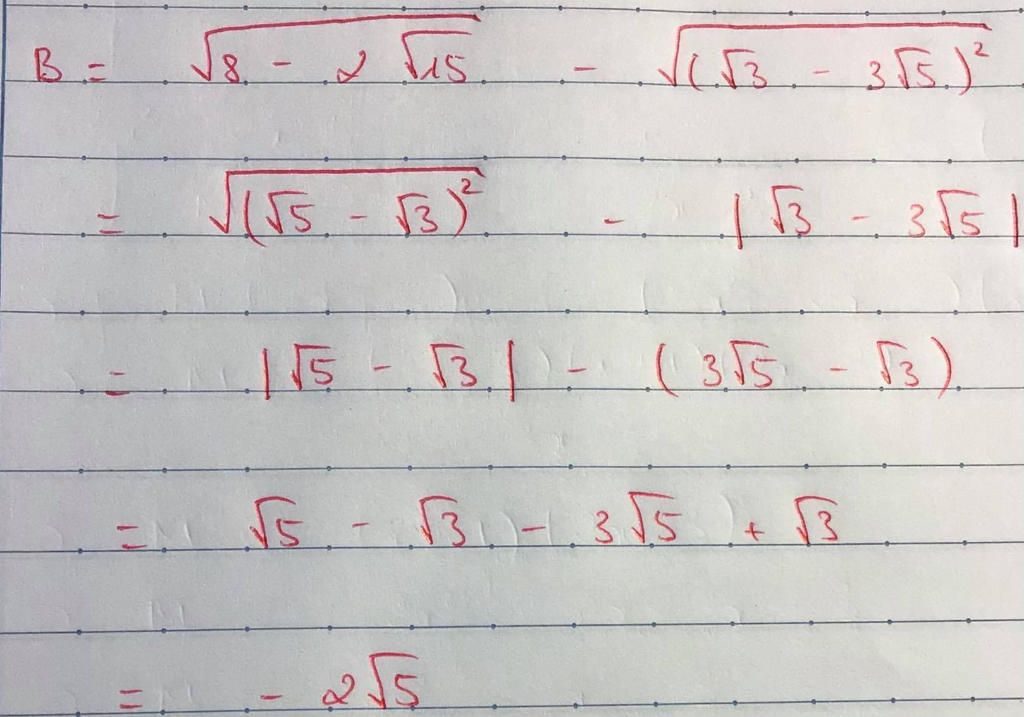 B = √(8 - 2√15) - √((√3 - 3√5)²)
= √((√5 - √3)²) - |√3 - 3√5|
= |√5 - √3| - (3√5 - √3)
= √5 - √3 - 3√5 + √3
= - 2√5